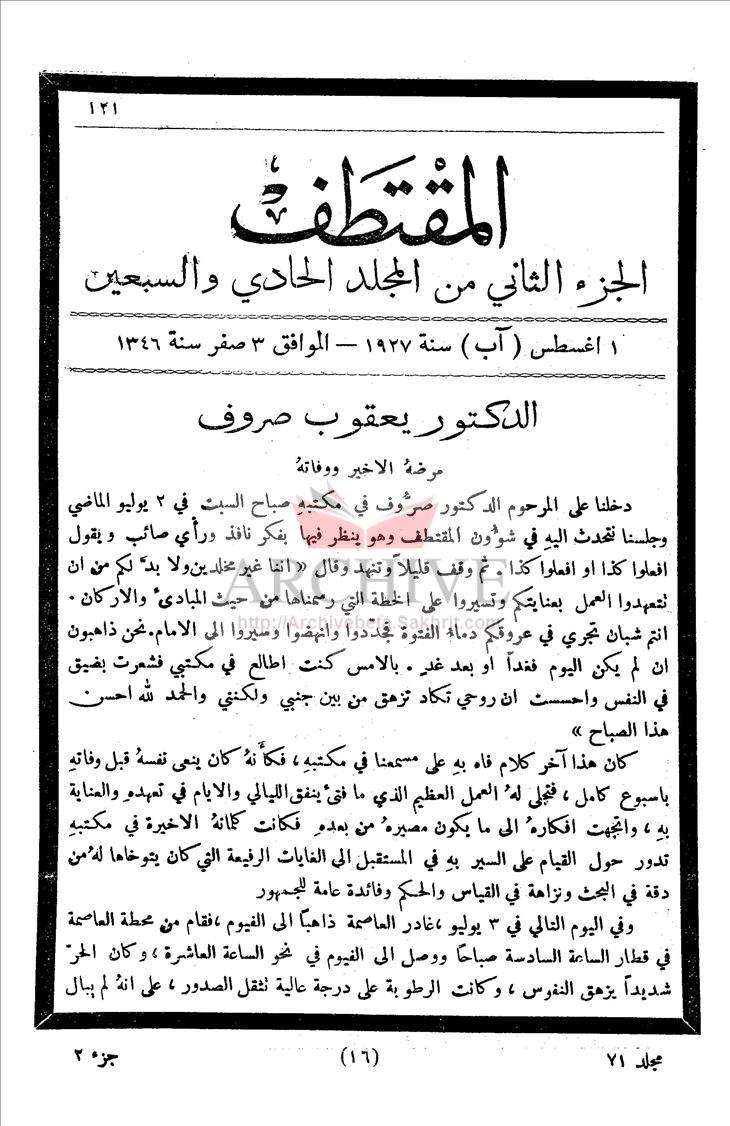 ١٢١
المقتطف
الجزء الثاني من المجلد الحادي والسبعين
١ اغسطس ( آب ) سنة ١٩٢٧ — الموافق ٣ صفر سنة ١٣٤٦
الدكتور يعقوب صروف
مرضهُ الاخير ووفاتهُ
دخلنا على المرحوم الدكتور صرُّوف في مكتبهِ صباح السبت في ٢ يوليو الماضي
وجلسنا نتحدث اليهِ في شؤُون المقتطف وهو ينظر فيها بفكر نافذ ورأي صائب ويقول
افعلوا كذا او افعلوا كذا . ثم وقف قليلاً وتنهد وقال « اننا غير مخلدين ولا بدَّ لكم من ان
نتعهدوا العمل بعنايتكم وتسيروا على الخطة التي رسمناها من حيث المبادئ والاركان .
انتم شبان تجري في عروقكم دماءُ الفتوة فجددوا وانهضوا وسيروا الى الامام. نحن ذاهبون
ان لم يكن اليوم فغداً او بعد غدٍ . بالامس كنت اطالع في مكتبي فشعرت بضيق
في النفس واحسست ان روحي تكاد تزهق من بين جنبي ولكنني والحمد لله احسن
هذا الصباح »
كان هذا آخر كلام فاه بهِ على مسمعنا في مكتبهِ ، فكأنهُ كان ينعى نفسهُ قبل وفاتهِ
باسبوع كامل ، فتجلى لهُ العمل العظيم الذي ما فتئ ينفق الليالي والايام في تعهدهِ والعناية
بهِ ، واتجهت افكارهُ الى ما يكون مصيرهُ من بعدهِ فكانت كلماتهُ الاخيرة في مكتبهِ
تدور حول القيام على السير بهِ في المستقبل الى الغايات الرفيعة التي كان يتوخاها لهُ من
دقة في البحث ونزاهة في القياس والحكم وفائدة عامة للجمهور
وفي اليوم التالي في ٣ يوليو ،غادر العاصمة ذاهباً الى الفيوم ،فقام من محطة العاصمة
في قطار الساعة السادسة صباحاً ووصل الى الفيوم في نحو الساعة العاشرة ، وكان الحرّ
شديداً يزهق النفوس ، وكانت الرطوبة على درجة عالية تثقل الصدور ، على انهُ لم يبال
مجلد ٧١
(١٦)
جزء ٢
ARCHIVE
http://Archivebeta.Sakhrit.com